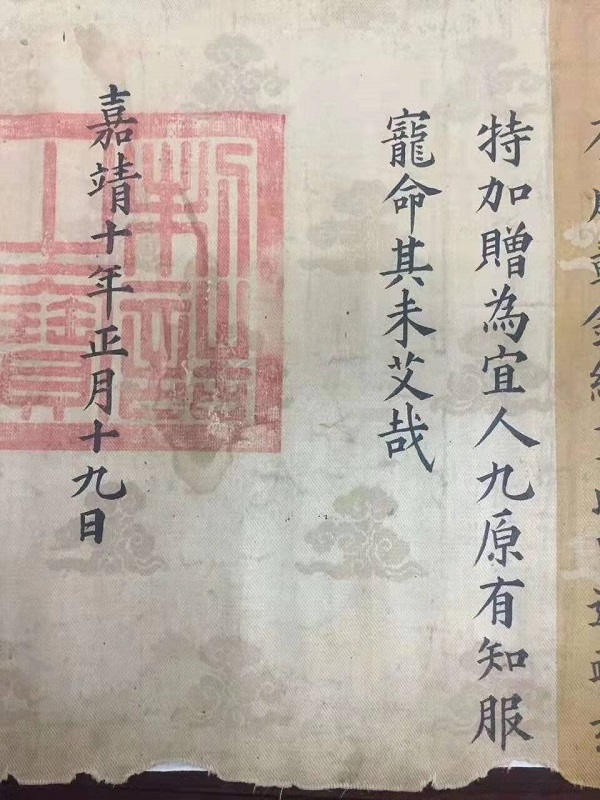 特加贈為宜人九原有知服
寵命其未艾哉
嘉靖十年正月十九日